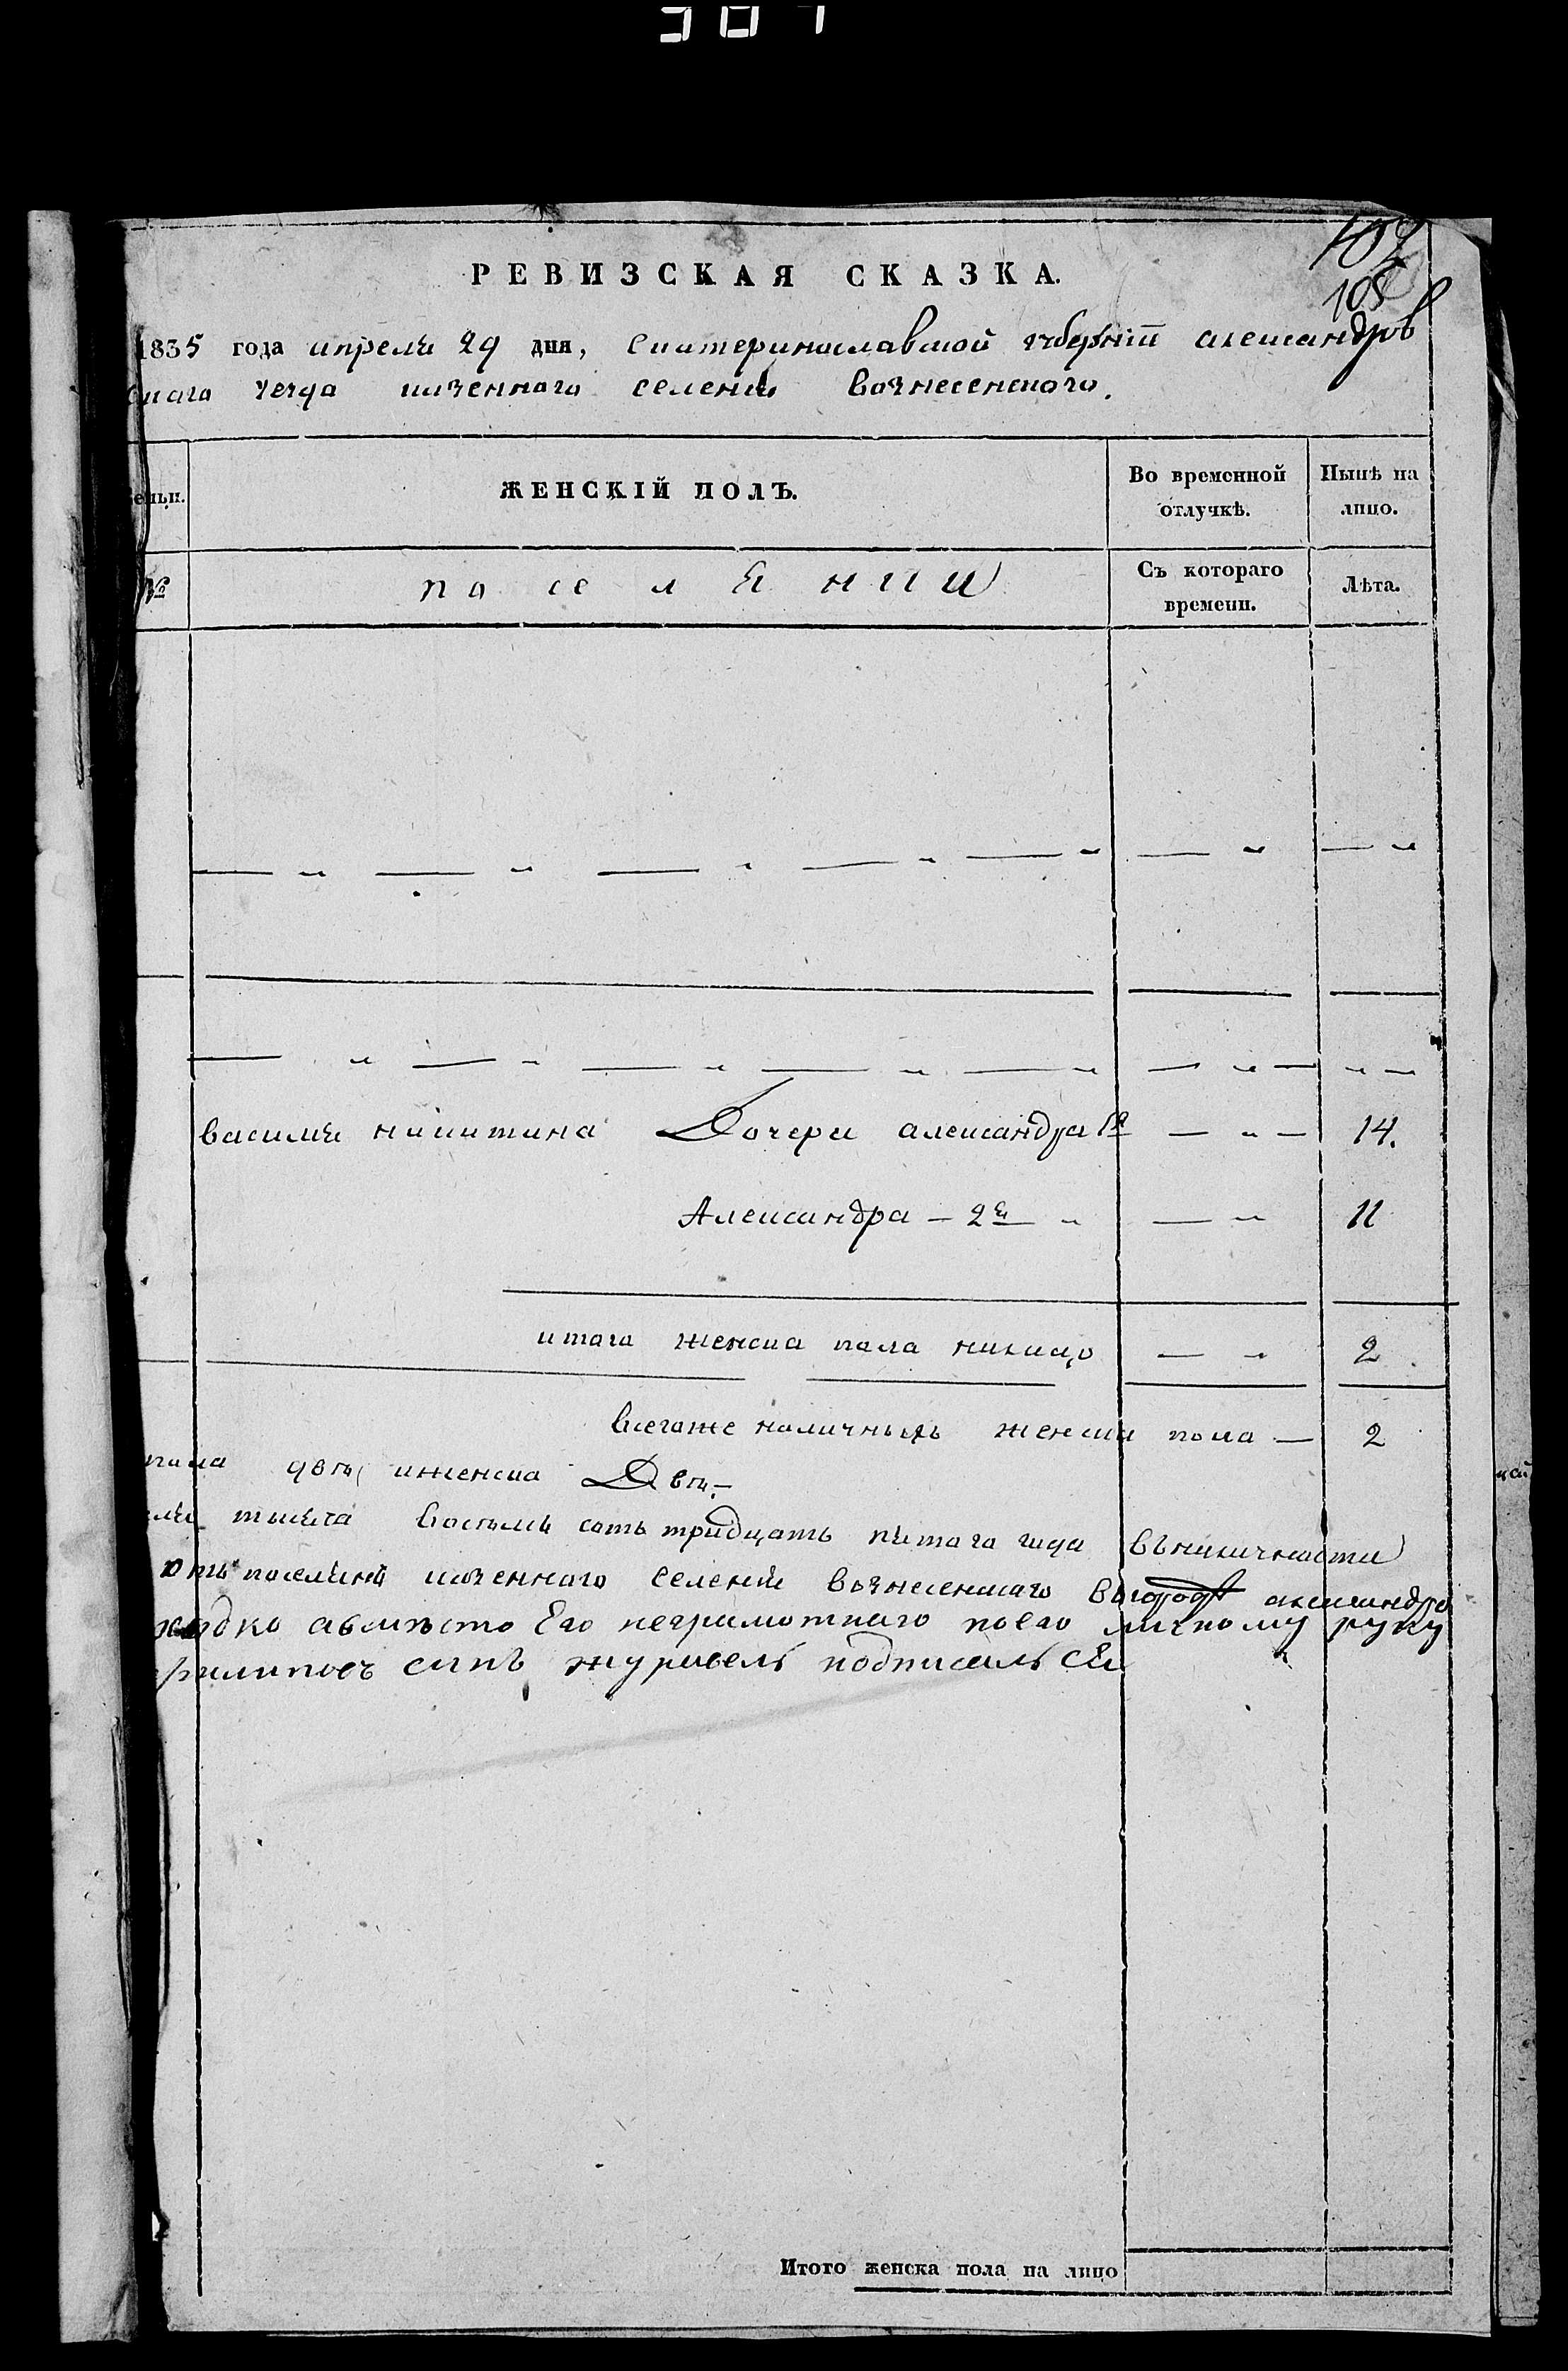 307
107
105
РЕВИЗСКАЯ СКАЗКА.
1835 года апреля 29 дня, Екатеринославской губернїи александров
скаго уезда казенного селения вознесенского.
ЖЕНСКІЙ ПОЛЪ.
Во временной отлучкѣ.
Нынѣ на лицо.
№
поселянии
Съ котораго времени.
Лѣта.
василия никитина Дочери александра 1я — „ — 14.
Александра — 2я „ — „ 11
итого женска пола налицо — „ 2
всегоже наличныхъ женска пола — 2
пола два, иженска Две.—
тысяча восемь сотъ тридцать пятаго года въналичности
поселянъ казенного селения вознесенскаго александра
авместо Его неграмотнаго поего личному руку
филиповъ сынъ журавель подписалься
Итого женска пола на лицо